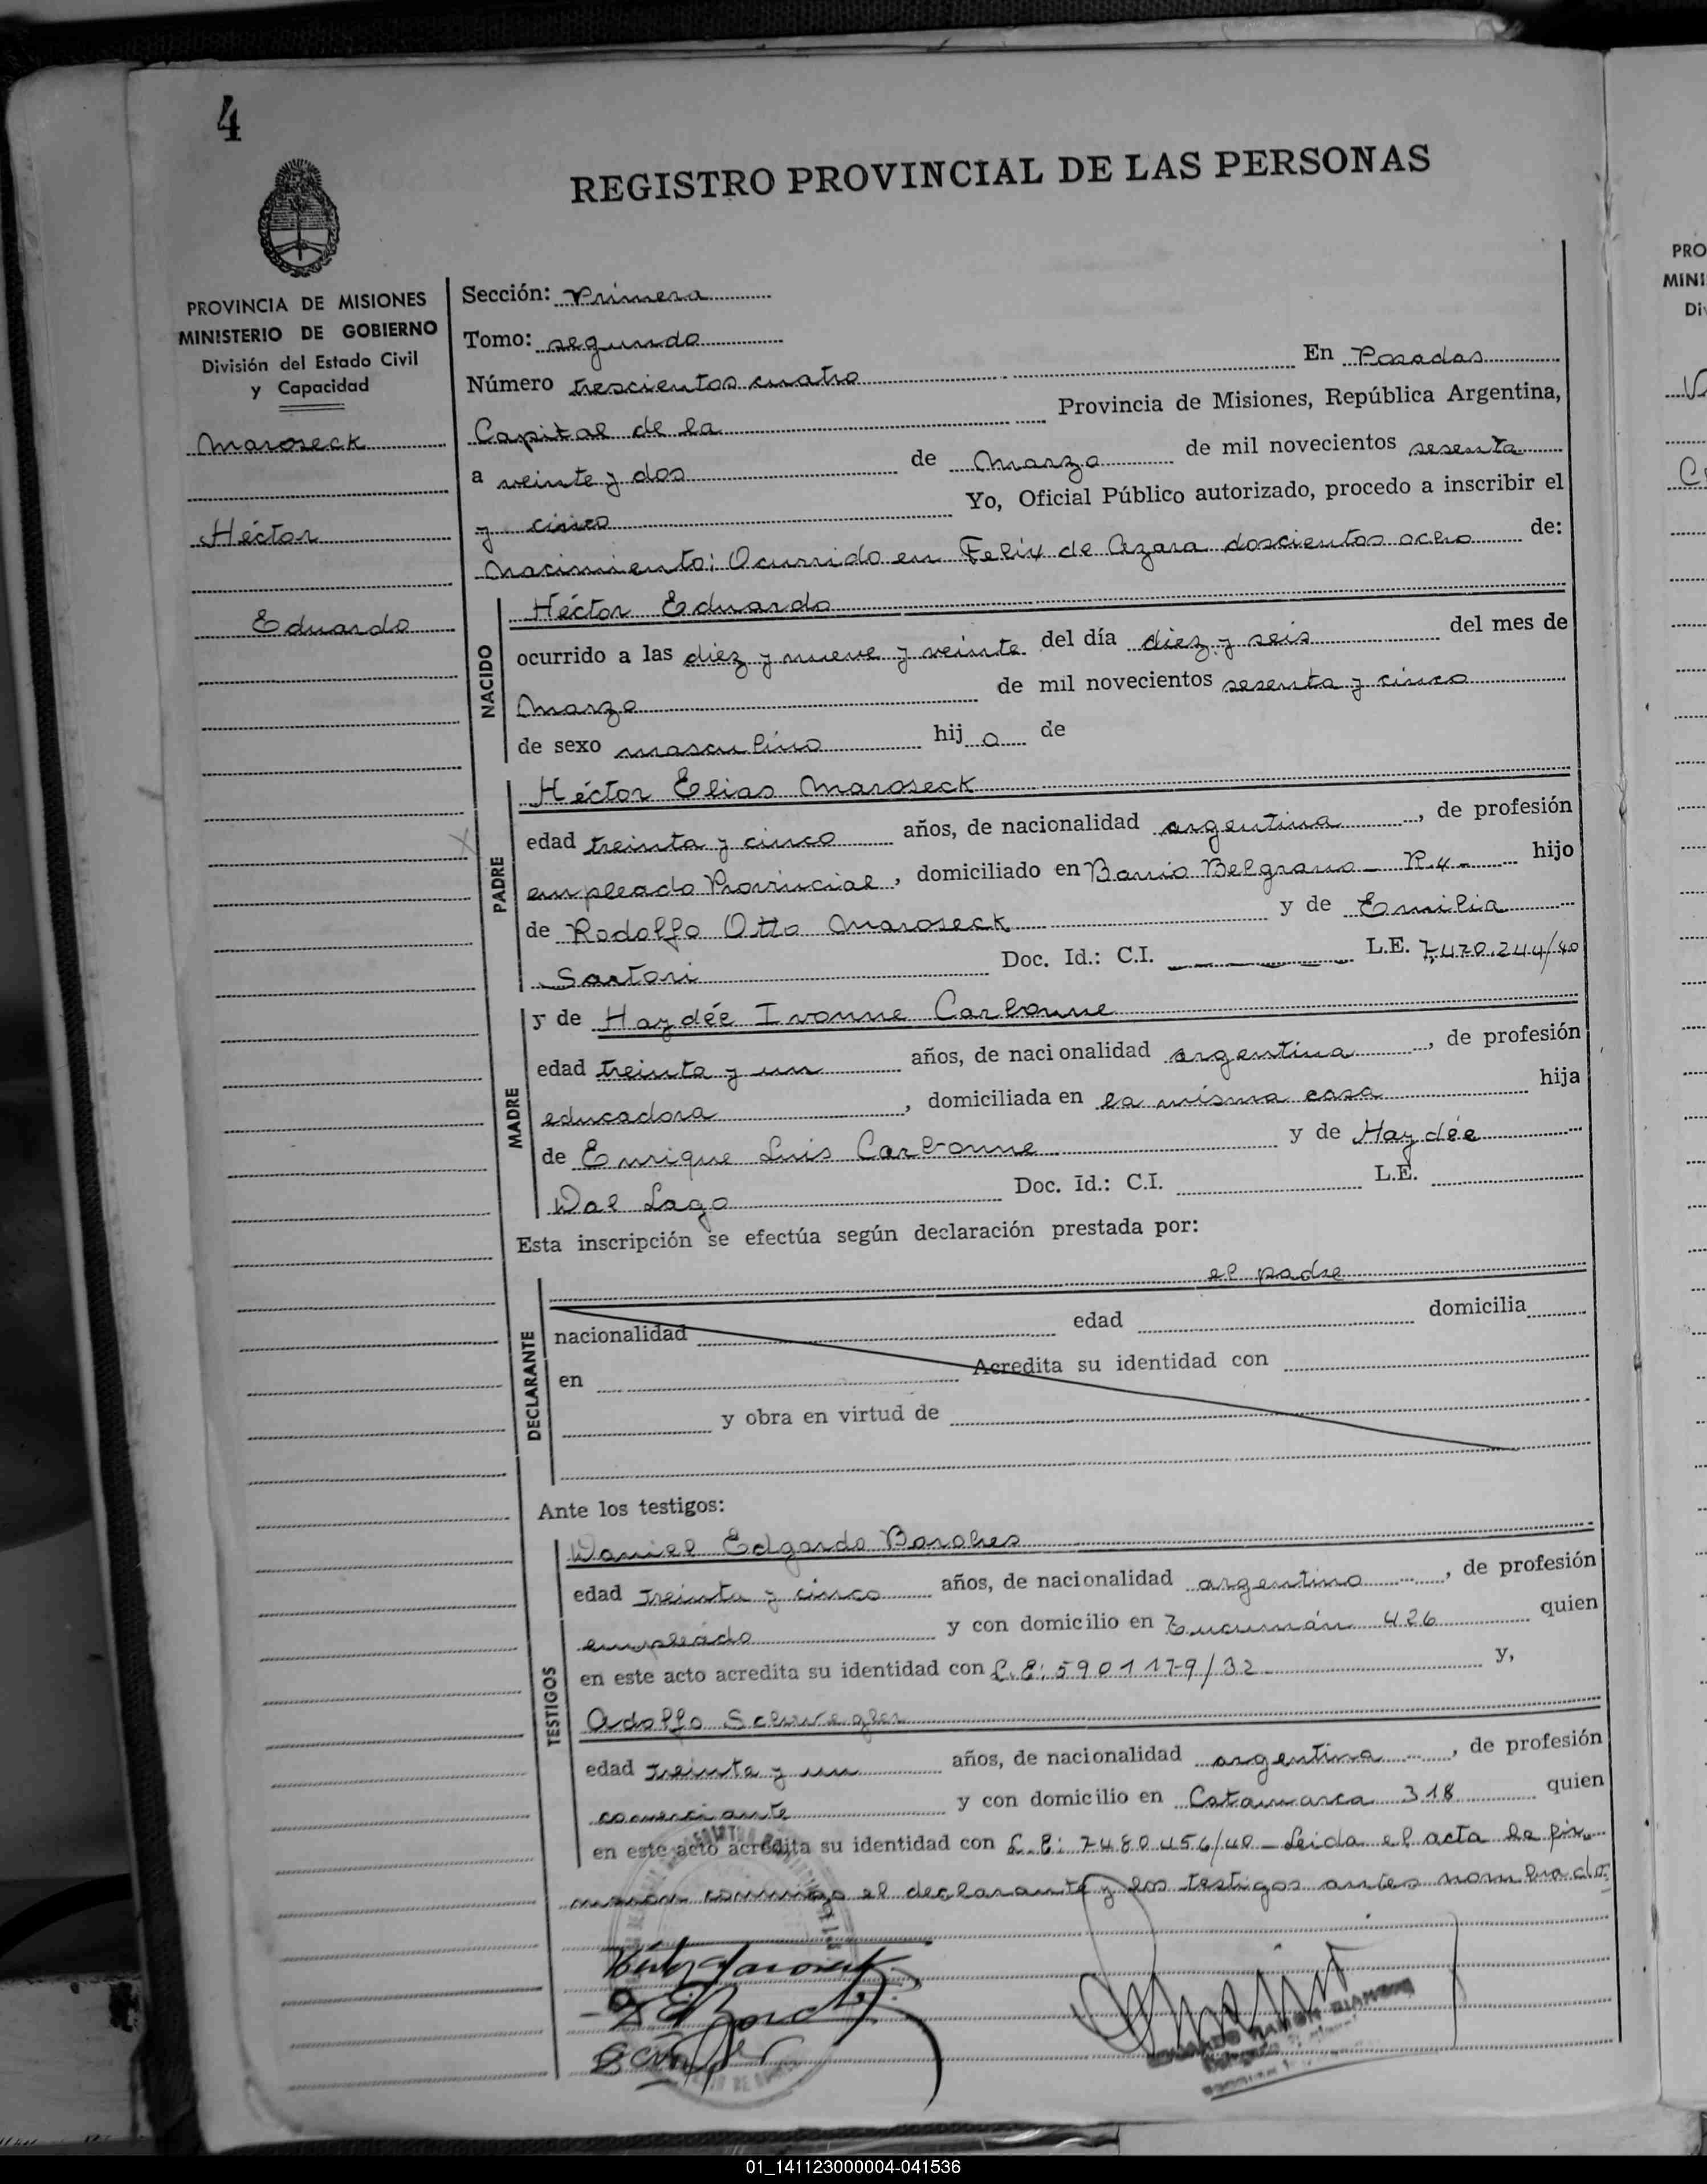 4
REGISTRO PROVINCIAL DE LAS PERSONAS
PROVINCIA DE MISIONES
MINISTERIO DE GOBIERNO
División del Estado Civil
y Capacidad
Maroseck
Héctor
Eduardo
Sección: Primera
Tomo: segundo
Número trescientos cuatro En Posadas
Capital de la Provincia de Misiones, República Argentina,
a veinte y dos de Marzo de mil novecientos sesenta
y cinco Yo, Oficial Público autorizado, procedo a inscribir el
Nacimiento: Ocurrido en Felix de Azara doscientos ocho de:
NACIDO
Héctor Eduardo
ocurrido a las diez y nueve y veinte del día diez y seis del mes de
Marzo de mil novecientos sesenta y cinco
de sexo masculino hij o de
PADRE
Héctor Elias Maroseck
edad treinta y cinco años, de nacionalidad argentina, de profesión
empleado Provincial, domiciliado en Barrio Belgrano - R.4- hijo
de Rodolfo Otto Maroseck y de Emilia
Sartori Doc. Id.: C.I. L.E. 7.470.244/40
MADRE
y de Haydée Ivonne Carbonne
edad treinta y un años, de nacionalidad argentina, de profesión
educadora, domiciliada en la misma casa hija
de Enrique Luis Carbonne y de Haydée
Dal Lago Doc. Id.: C.I. L.E.
Esta inscripción se efectúa según declaración prestada por:
DECLARANTE
el padre
nacionalidad edad domicilia
en Acredita su identidad con
y obra en virtud de
Ante los testigos:
TESTIGOS
Daniel Edgardo
edad treinta y cinco años, de nacionalidad argentino, de profesión
empleado y con domicilio en Tucumán 426 quien
en este acto acredita su identidad con L.E: 5901179/32 y,
Adolfo
edad treinta y un años, de nacionalidad argentina, de profesión
comerciante y con domicilio en Catamarca 318 quien
en este acto acredita su identidad con L.E: 7480456/40 - Leida el acta la fir-
conmigo el declarante y los testigos antes nombrados
PRO
MINI
Div
01_141123000004-041536